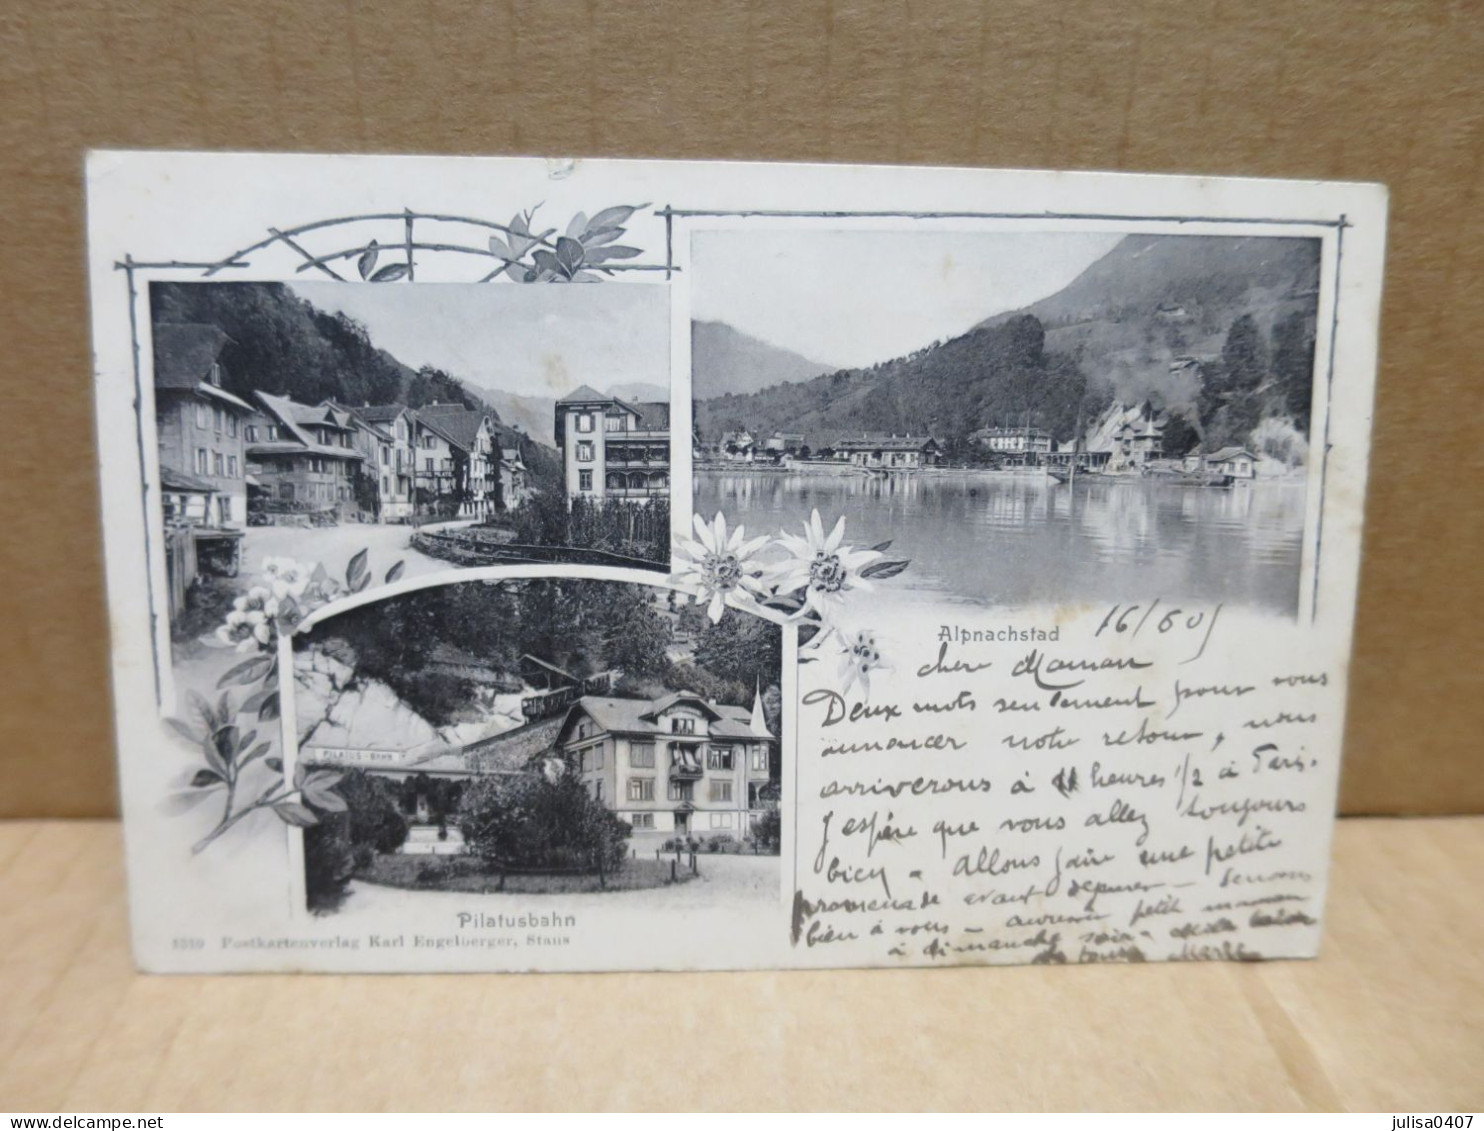 Alpnachstad 16/60
chere Maman
Deux mots seulement pour vous
annoncer notre retour, nous
arriverons à 11 heures 1/2 à Paris.
J'espère que vous allez toujours
bien allons faire une petite
promenade avant
bien à vous — petit maman
à dimanche soir
PILATUS-BAHN
Pilatusbahn
Postkartenverlag Karl Engelberger, Stans
julisa0407